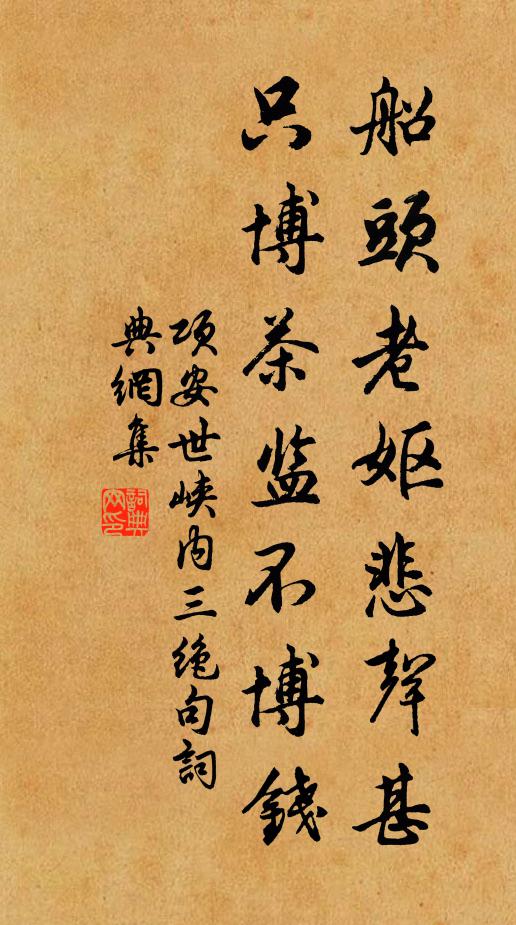 船頭老妪悲聲甚
只博茶监不博錢
项安世峡内三绝句詞
典網集
詞典网印